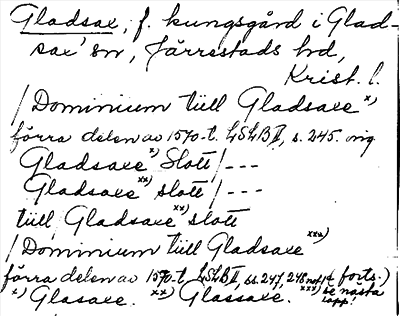 Gladsax, f. kungsgård i Glad-
sax' sn, Järrestads hd,
Krist. l.
/ Dominium tüll Gladsaxe x)
förra delen av 1570-t. LSLB II, s. 245. orig
Gladsaxe x) Slott / ---
Gladsaxe xx) slott / ---
tüll Gladsaxe xx) slott
/ Dominium tüll Gladsaxe xxx)
förra delen av 1570-t. LSLB II, ss. 247, 248 (forts.)
x) Glasaxe. xx) Glassaxe. xxx) se nästa
lapp!